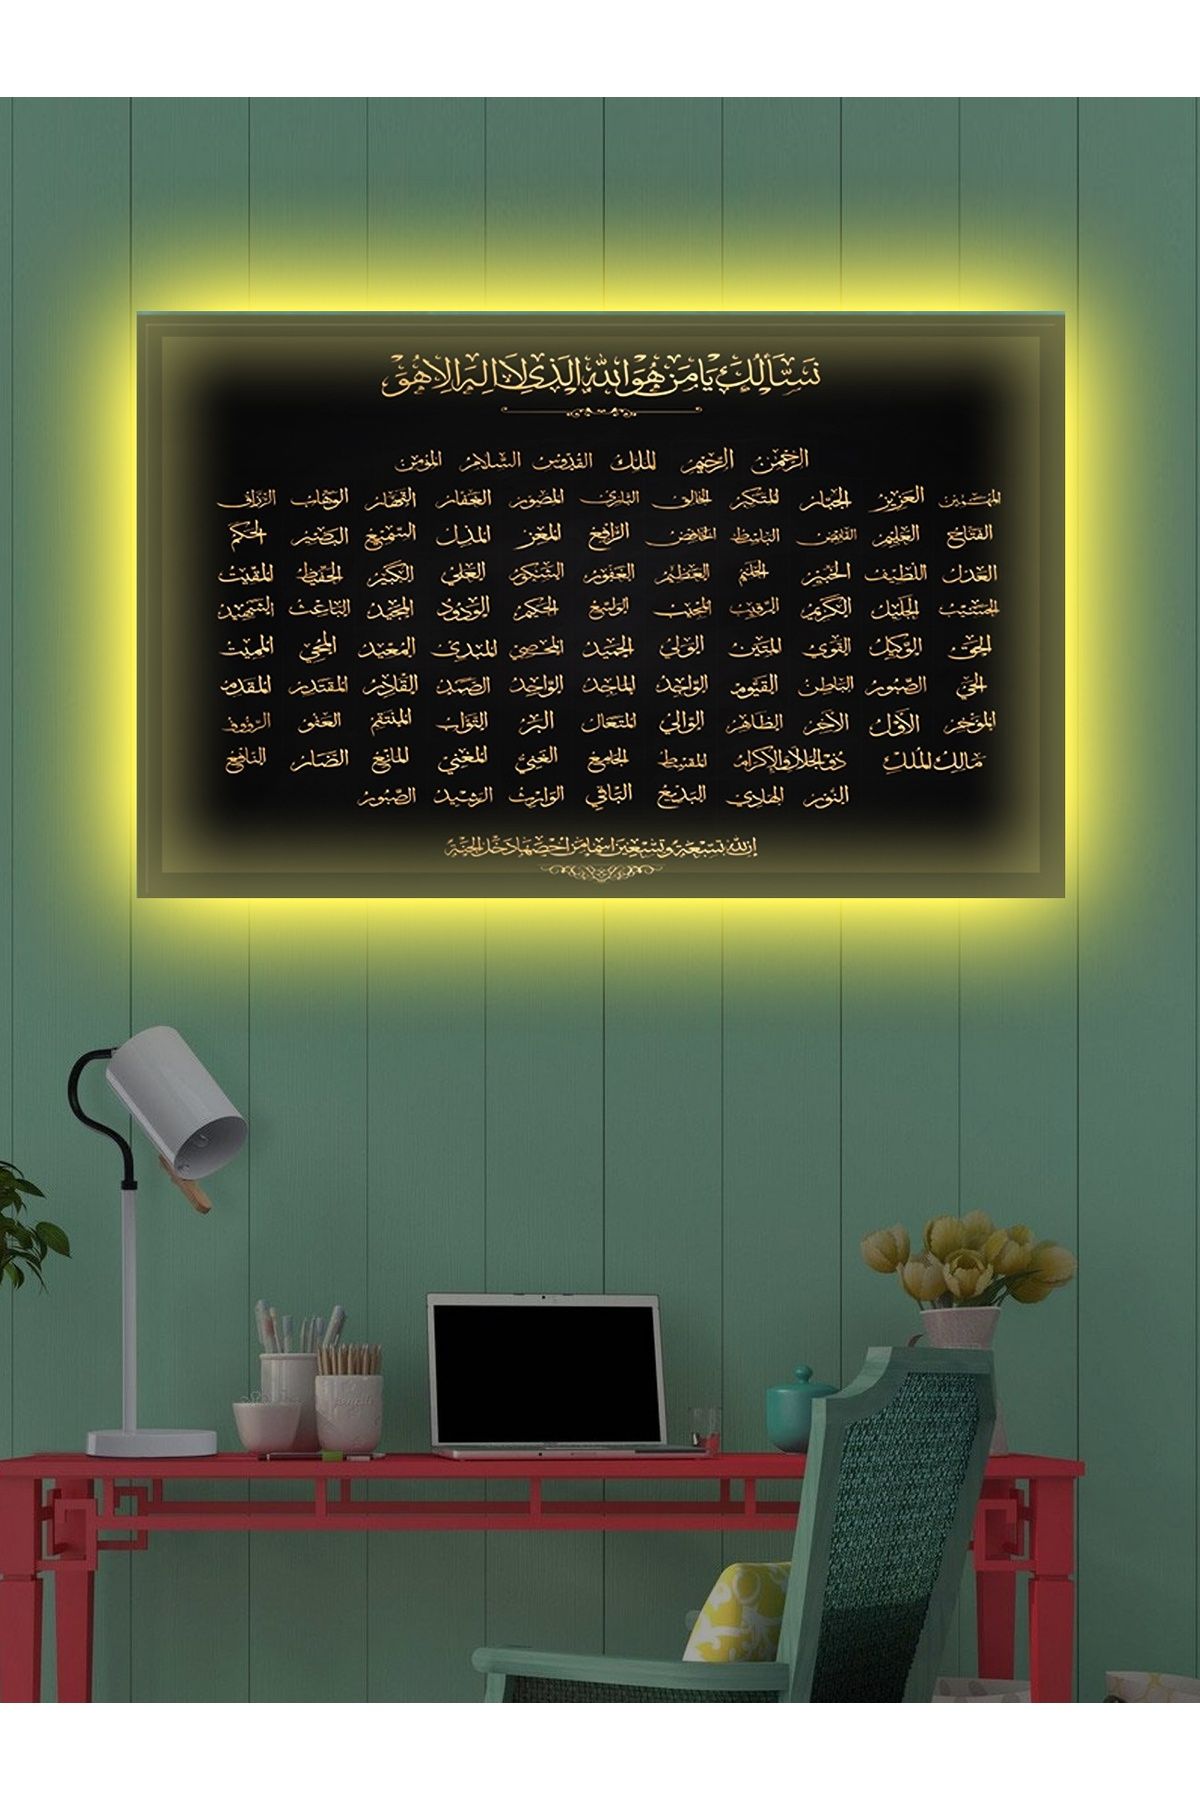 نسألك يا من هو الله الذي لا إله إلا هو
الرحمن الرحيم الملك القدوس السلام المؤمن
المهيمن العزيز الجبار المتكبر الخالق البارئ المصور الغفار القهار الوهاب الرزاق
الفتاح العليم القابض الباسط الخافض الرافع المعز المذل السميع البصير الحكم
العدل اللطيف الخبير الحليم العظيم الغفور الشكور العلي الكبير الحفيظ المقيت
الحسيب الجليل الكريم الرقيب المجيب الواسع الحكيم الودود المجيد الباعث الشهيد
الحق الوكيل القوي المتين الولي الحميد المحصي المبدئ المعيد المحيي المميت
الحي الصبور الباطن القيوم الواجد الماجد الواحد الصمد القادر المقتدر المقدم
المؤخر الأول الآخر الظاهر الوالي المتعال البر التواب المنتقم العفو الرؤوف
مالك الملك ذو الجلال والإكرام المقسط الجامع الغني المغني المانع الضار النافع
النور الهادي البديع الباقي الوارث الرشيد الصبور
إن لله تسعة وتسعين اسما من أحصاها دخل الجنة